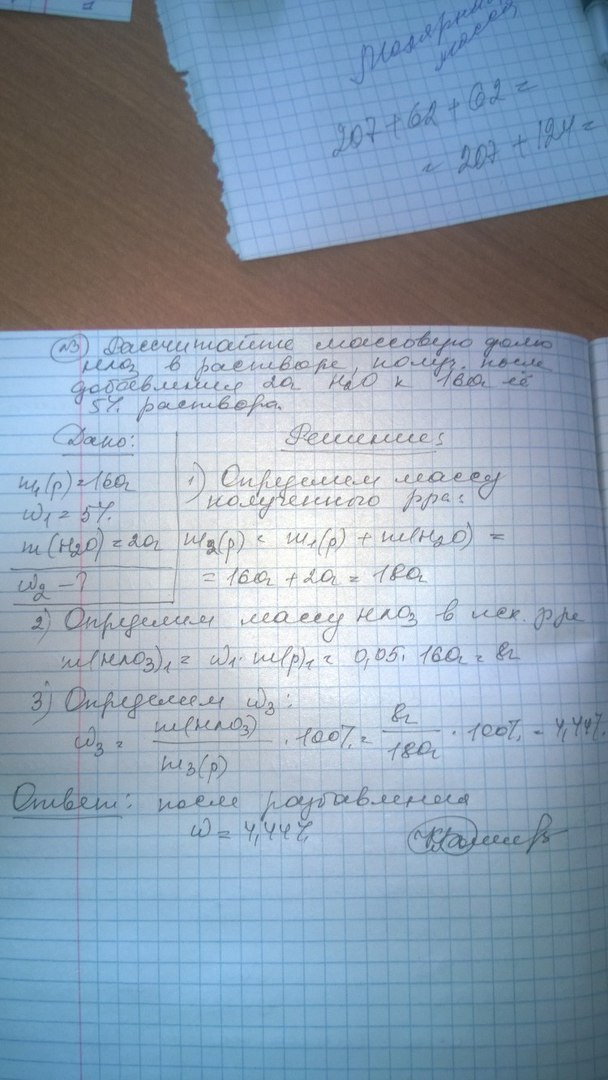 Молярная
масса
207+62+62=
= 207+124=
№3 Рассчитайте массовую долю
HNO3 в растворе, получ. после
добавления 20г H2O к 160г её
5% раствора.
Дано:
Решение:
m1(р)=160г
ω1 = 5%
m(H2O)=20г
ω2 - ?
1) Определим массу
полученного рра:
m2(р) = m1(р) + m(H2O) =
= 160г + 20г = 180г
2) Определим массу HNO3 в исх. рре
m(HNO3)1 = ω1 · m(р)1 = 0,05 · 160г = 8г
3) Определим ω3:
ω3 = m(HNO3) / m3(р) · 100% = 8г / 180г · 100% = 4,44%
Ответ: после разбавления
ω = 4,44%